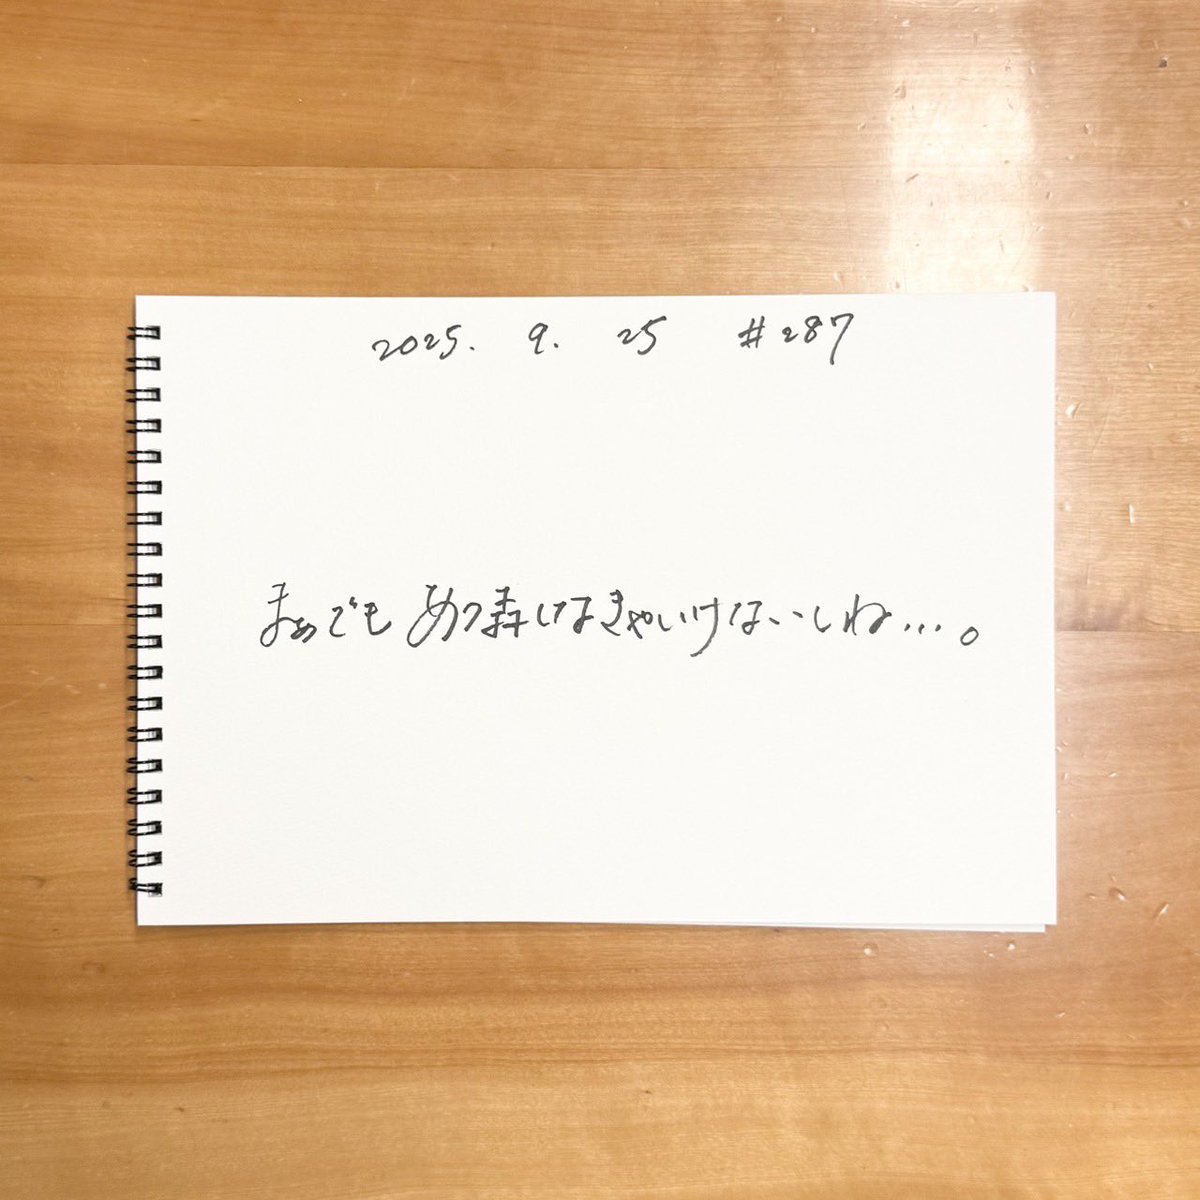 2025. 9. 25 #287
まぁでも あつ森しなきゃいけないしね…。